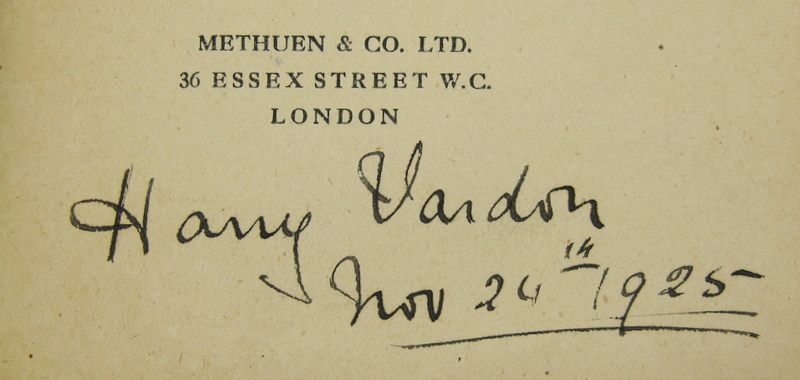 METHUEN & CO. LTD.
36 ESSEX STREET W.C.
LONDON
Harry Vardon
Nov 24th 1925